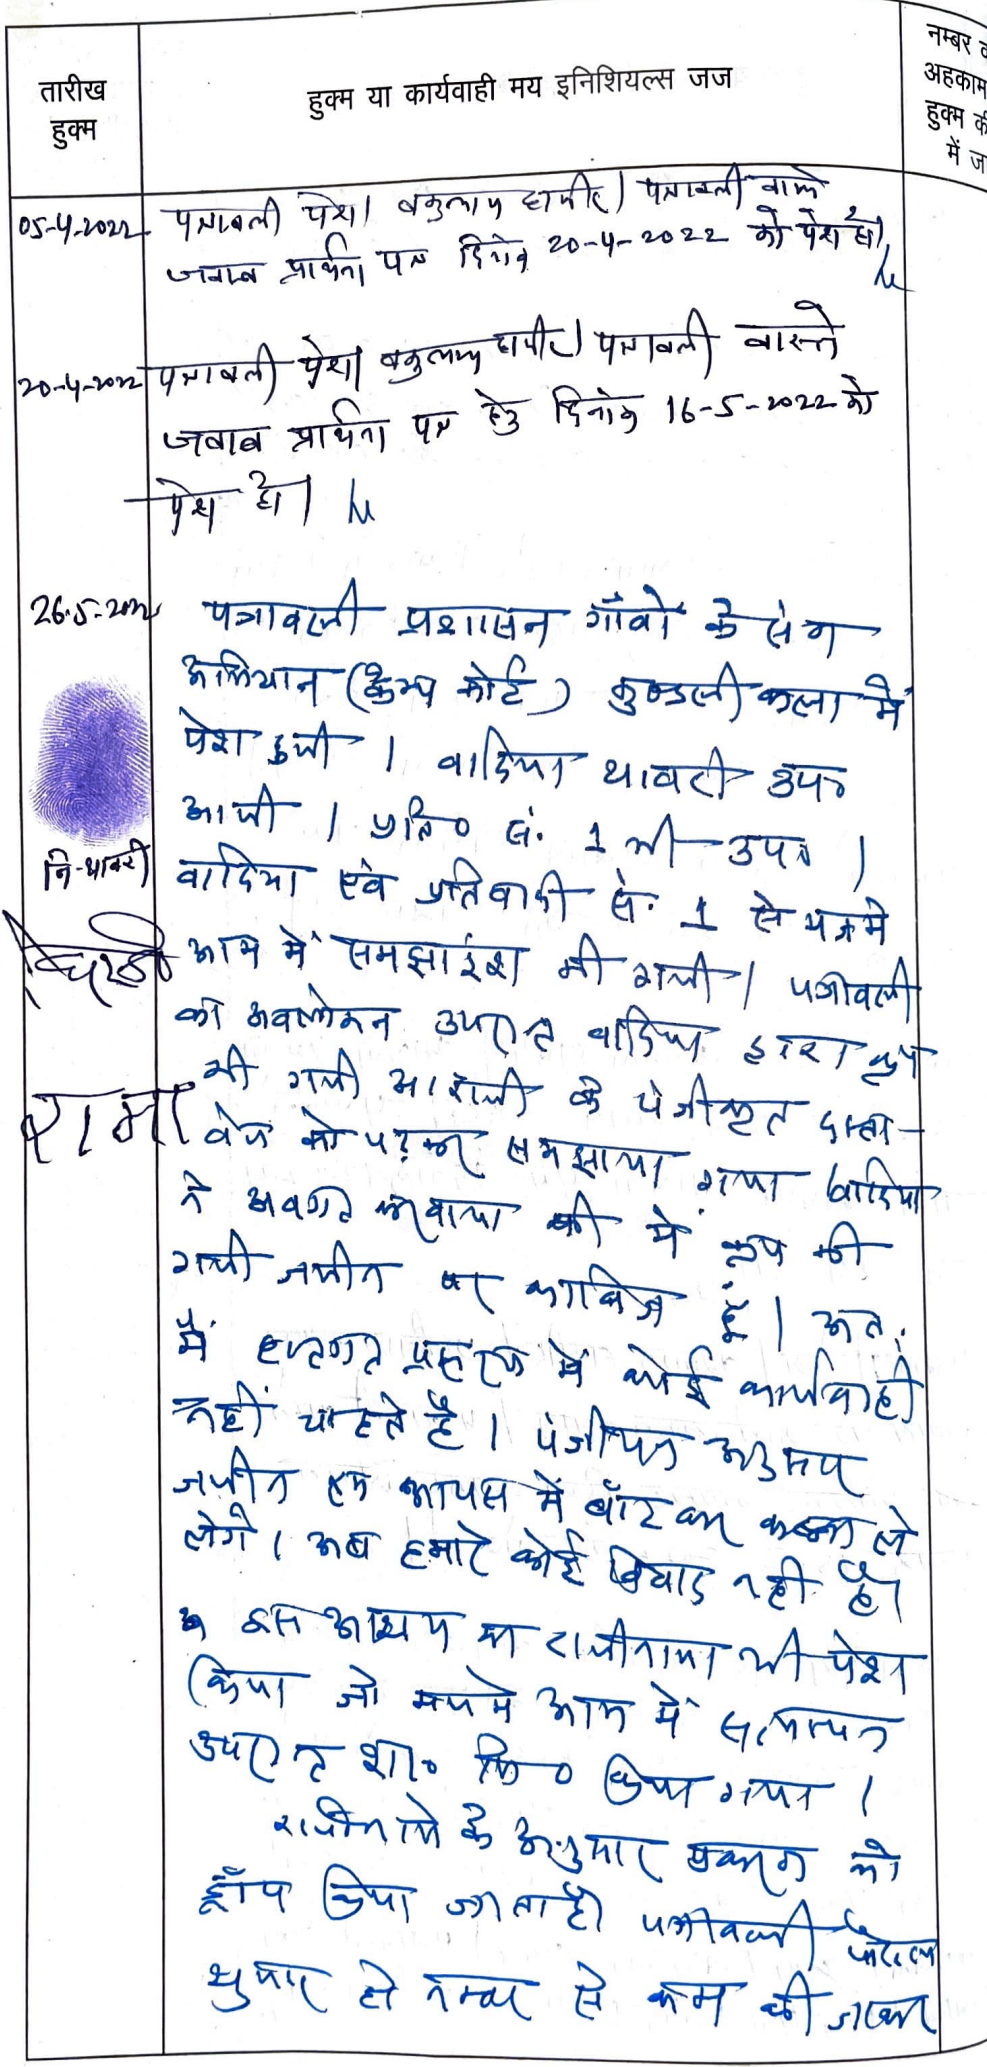 तारीख
हुक्म
हुक्म या कार्यवाही मय इनिशियल्स जज
नम्बर व
अहकाम
हुक्म की
में ज
05-4-2022 पत्रावली पेश। वकुलाय हाजीर। पत्रावली वास्ते
जवाब प्रार्थना पत्र दिनांक 20-4-2022 को पेश हो।
20-4-2022 पत्रावली पेश। वकुलाय हाजीर। पत्रावली वास्ते
जवाब प्रार्थना पत्र हेतु दिनांक 16-5-2022 को
पेश हो।
26.5.2022 पत्रावली प्रशासन गाँवों के संग
अभियान (कैम्प कोर्ट) कुण्डली कला में
पेश हुयी । वादिया थावरी उप०
आयी । प्रति० सं. 1 भी उप० ।
नि-थावरी
वादिया एवं प्रतिवादी सं. 1 से मजमे
आम में समझाईश की गयी । पत्रावली
का अवलोकन उपरान्त वादिया द्वारा क्रय
रामा
की गयी आराजी के पंजीकृत दस्ता-
वेज को पढ़कर समझाया गया वादिया
ने अवगत करवाया की मैं क्रय की
गयी जमीन पर काबिज हूँ । अतः
मैं हस्तगत प्रकरण में कोई कार्यवाही
नहीं चाहते है । पंजीयन अनुरूप
जमीन हम आपस में बाँट कर कब्जा ले
लेंगे । अब हमारे कोई विवाद नही है।
इस आशय का राजीनामा भी पेश
किया जो मजमे आम में सत्यापन
उपरान्त शा० मि० किया गया ।
राजीनामे के अनुसार प्रकरण को
ड्राॅप किया जाता है। पत्रावली फैसल
शुमार हो नम्बर से कम की जाकर